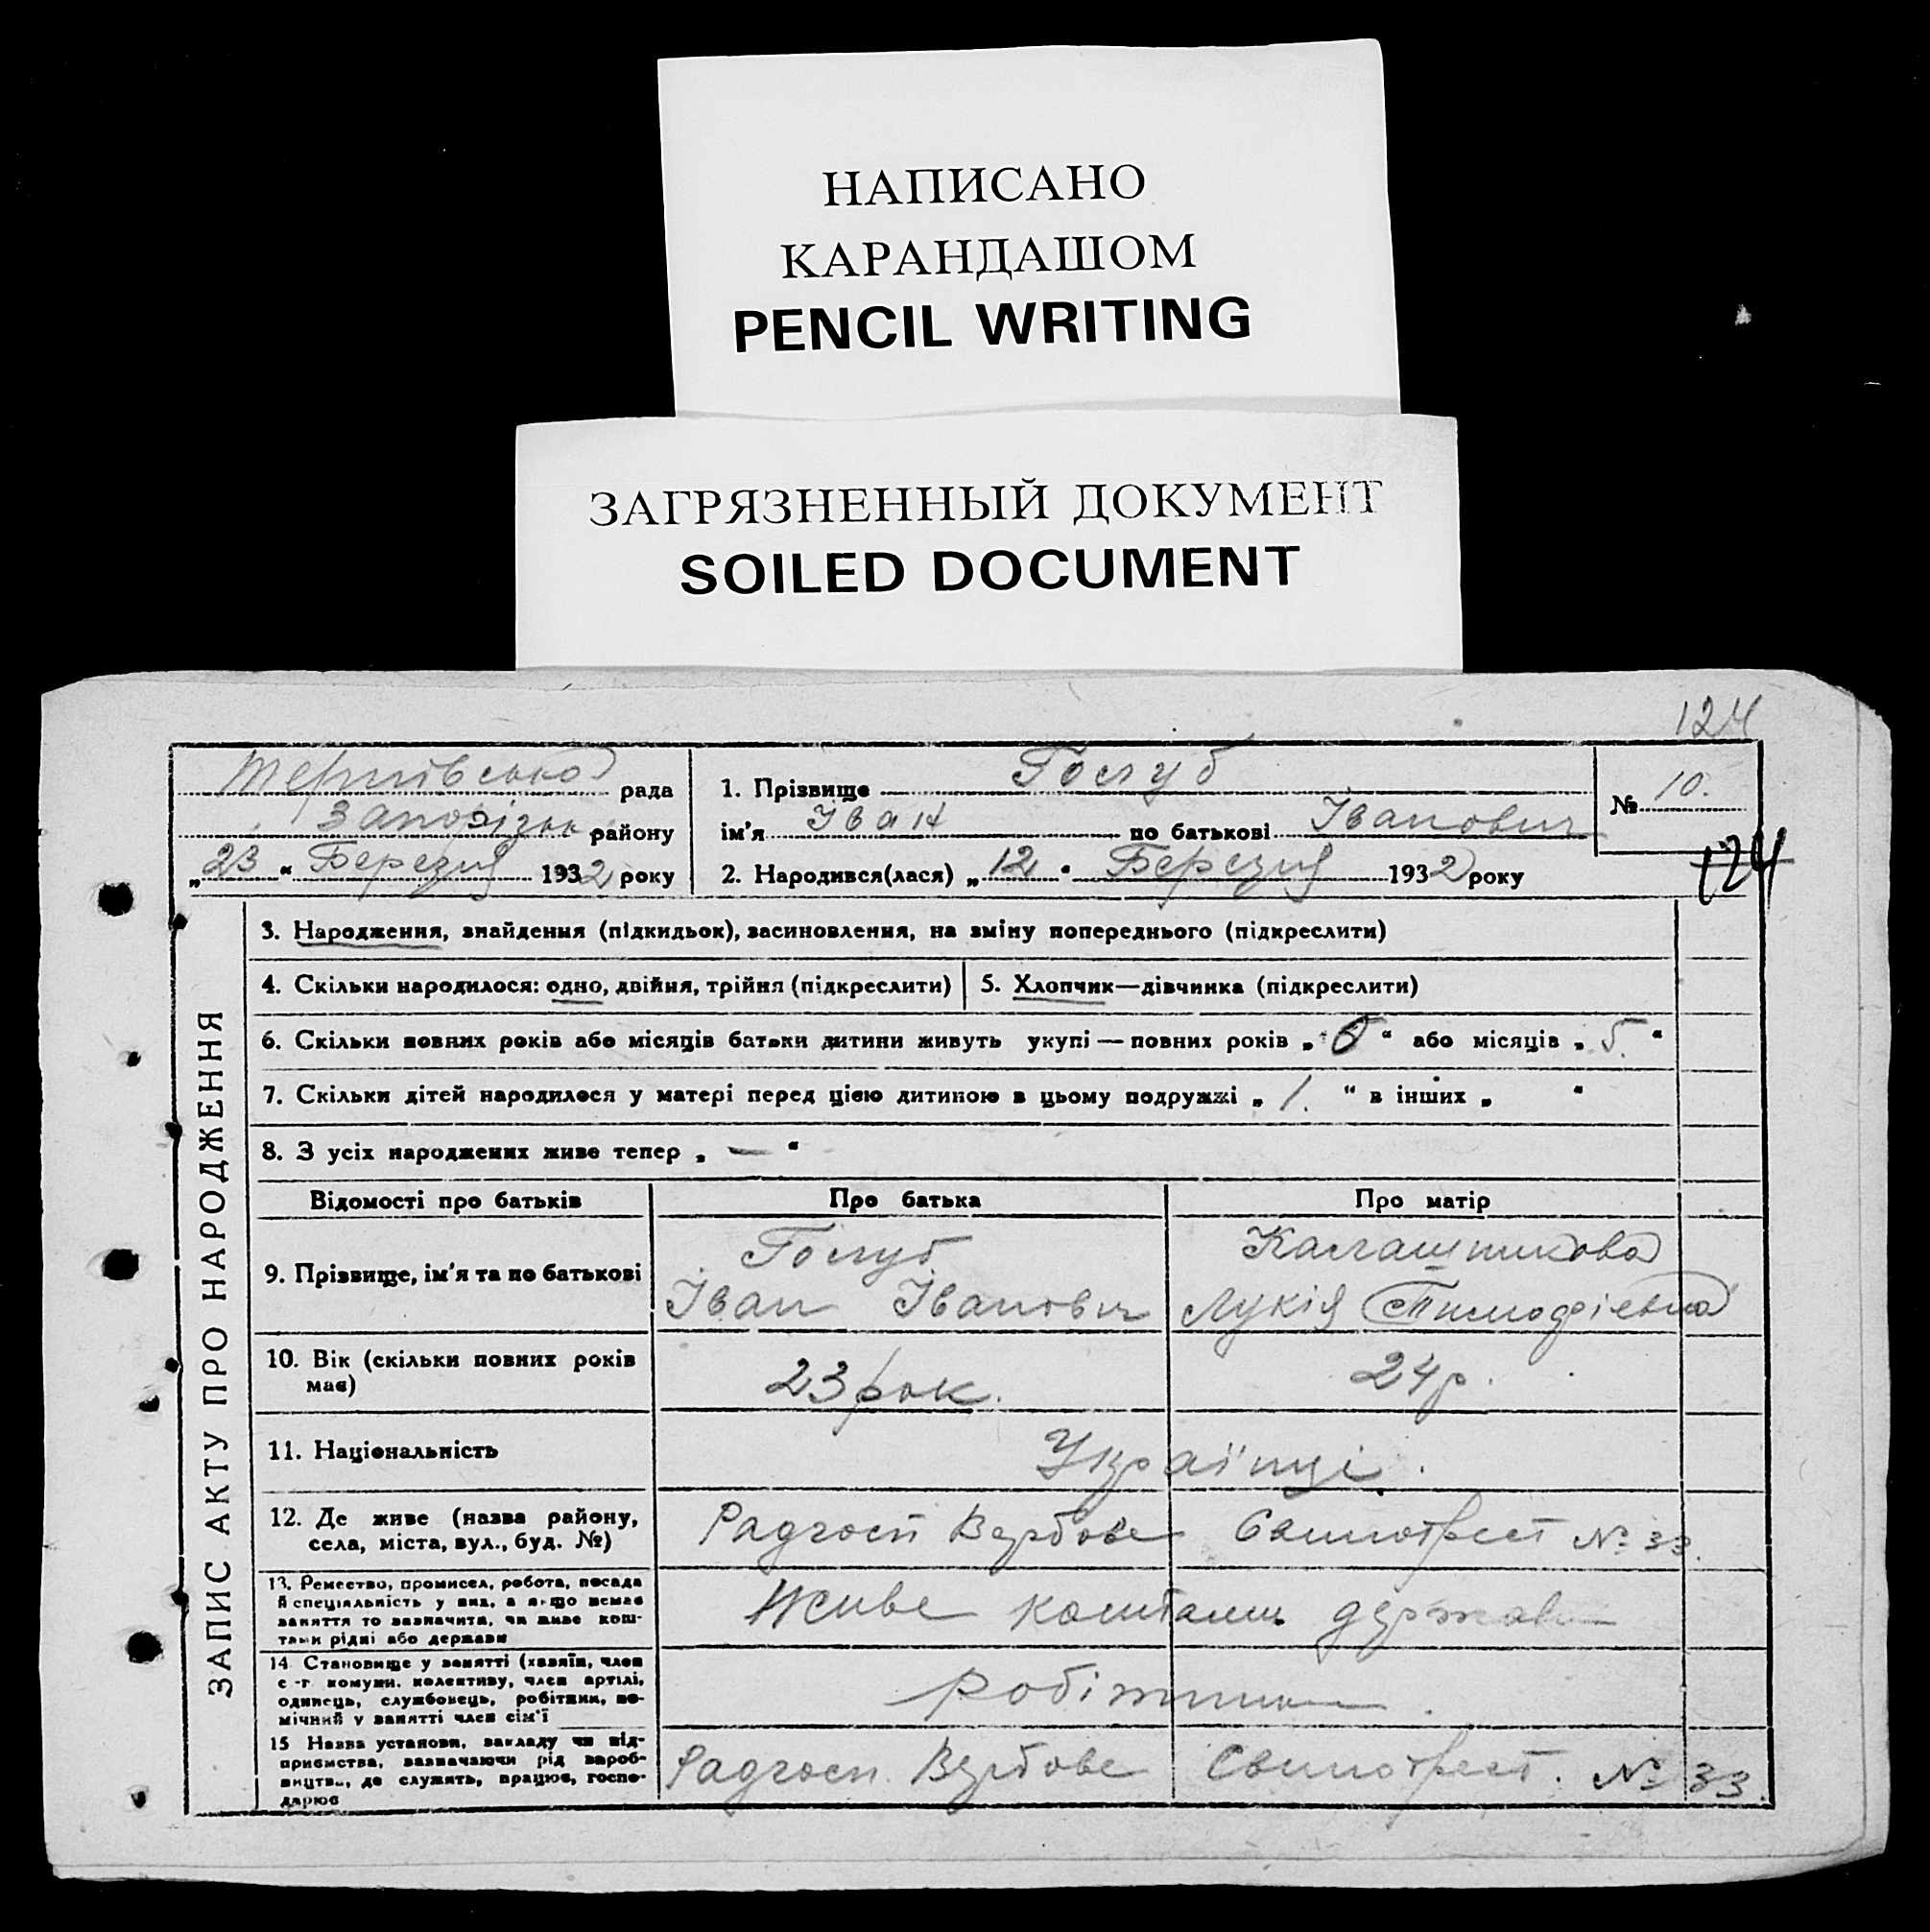 НАПИСАНО
КАРАНДАШОМ
PENCIL WRITING
ЗАГРЯЗНЕННЫЙ ДОКУМЕНТ
SOILED DOCUMENT
124
рада
Запорізьк району
„23“ Березня 1932 року
1. Прізвище Голуб
ім'я Іван по батькові Іванович
2. Народився(лася) „12“ Березня 1932 року
№ 10.
124
ЗАПИС АКТУ ПРО НАРОДЖЕННЯ
3. Народження, знайдення (підкидьок), засиновлення, на зміну попереднього (підкреслити)
4. Скільки народилося: одно, двійня, трійня (підкреслити)
5. Хлопчик—дівчинка (підкреслити)
6. Скільки повних років або місяців батьки дитини живуть укупі — повних років „ “ або місяців „5.“
7. Скільки дітей народилося у матері перед цією дитиною в цьому подружжі „1.“ в інших „ “
8. З усіх народжених живе тепер „—“
Відомості про батьків
Про батька
Про матір
9. Прізвище, ім'я та по батькові
Голуб
Іван Іванович
Калашникова
Лукія Тимофієвна
10. Вік (скільки повних років
має)
23 рок.
24 р.
11. Національність
Українці.
12. Де живе (назва району,
села, міста, вул., буд. №)
Радгосп Вербове Свинотрест № 33.
13. Ремество, промисел, робота, посада
й спеціяльність у них, а якщо немає
заняття то зазначити, чи живе кош-
тами рідні або держави
Живе коштами держави
14 Становище у занятті (хазяїн, член
с -г комуни. колективу, член артілі,
одинець, службовець, робітник, по-
мічний у занятті член сім'ї
Робітники.
15 Назва установи, закладу чи під-
приємства, зазначаючи рід вироб-
ництва, де служить, працює, госпо-
дарює
Радгосп Вербове Свинотрест. № 33.